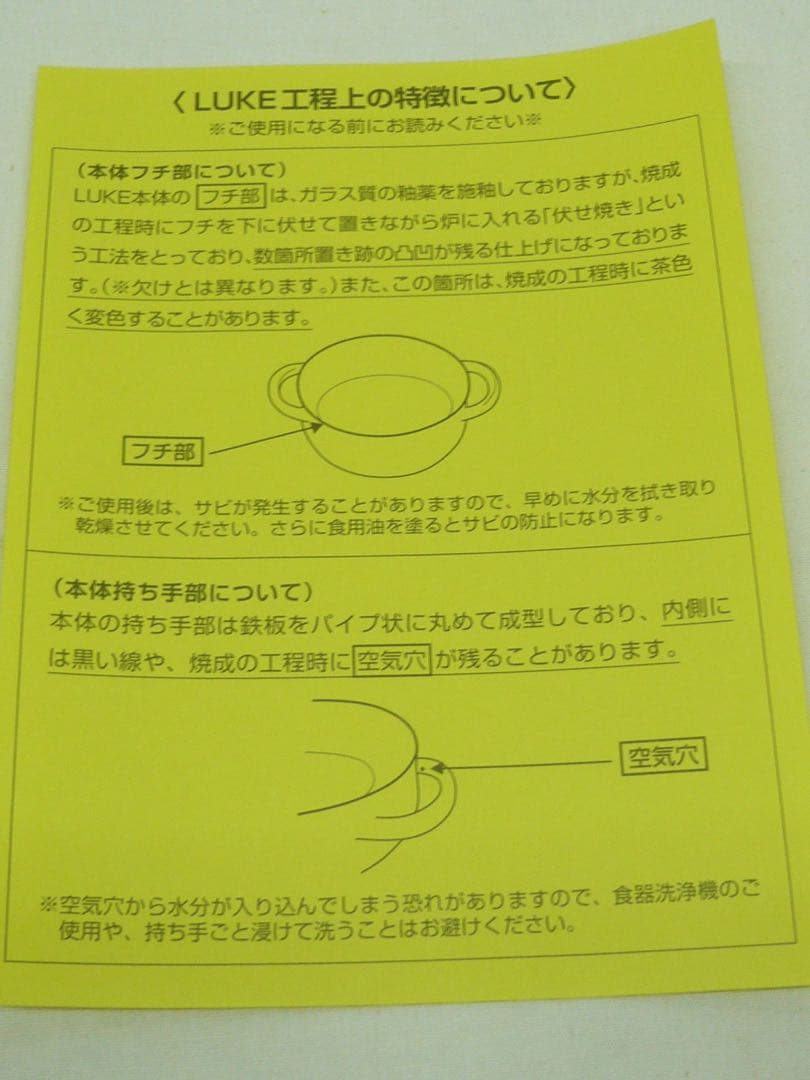 〈LUKE工程上の特徴について〉
※ご使用になる前にお読みください※
（本体フチ部について）
LUKE本体の フチ部 は、ガラス質の釉薬を施釉しておりますが、焼成
の工程時にフチを下に伏せて置きながら炉に入れる「伏せ焼き」とい
う工法をとっており、数箇所置き跡の凸凹が残る仕上げになっておりま
す。（※欠けとは異なります。）また、この箇所は、焼成の工程時に茶色
く変色することがあります。
フチ部
※ご使用後は、サビが発生することがありますので、早めに水分を拭き取り
乾燥させてください。さらに食用油を塗るとサビの防止になります。
（本体持ち手部について）
本体の持ち手部は鉄板をパイプ状に丸めて成型しており、内側に
は黒い線や、焼成の工程時に 空気穴 が残ることがあります。
空気穴
※空気穴から水分が入り込んでしまう恐れがありますので、食器洗浄機のご
使用や、持ち手ごと浸けて洗うことはお避けください。